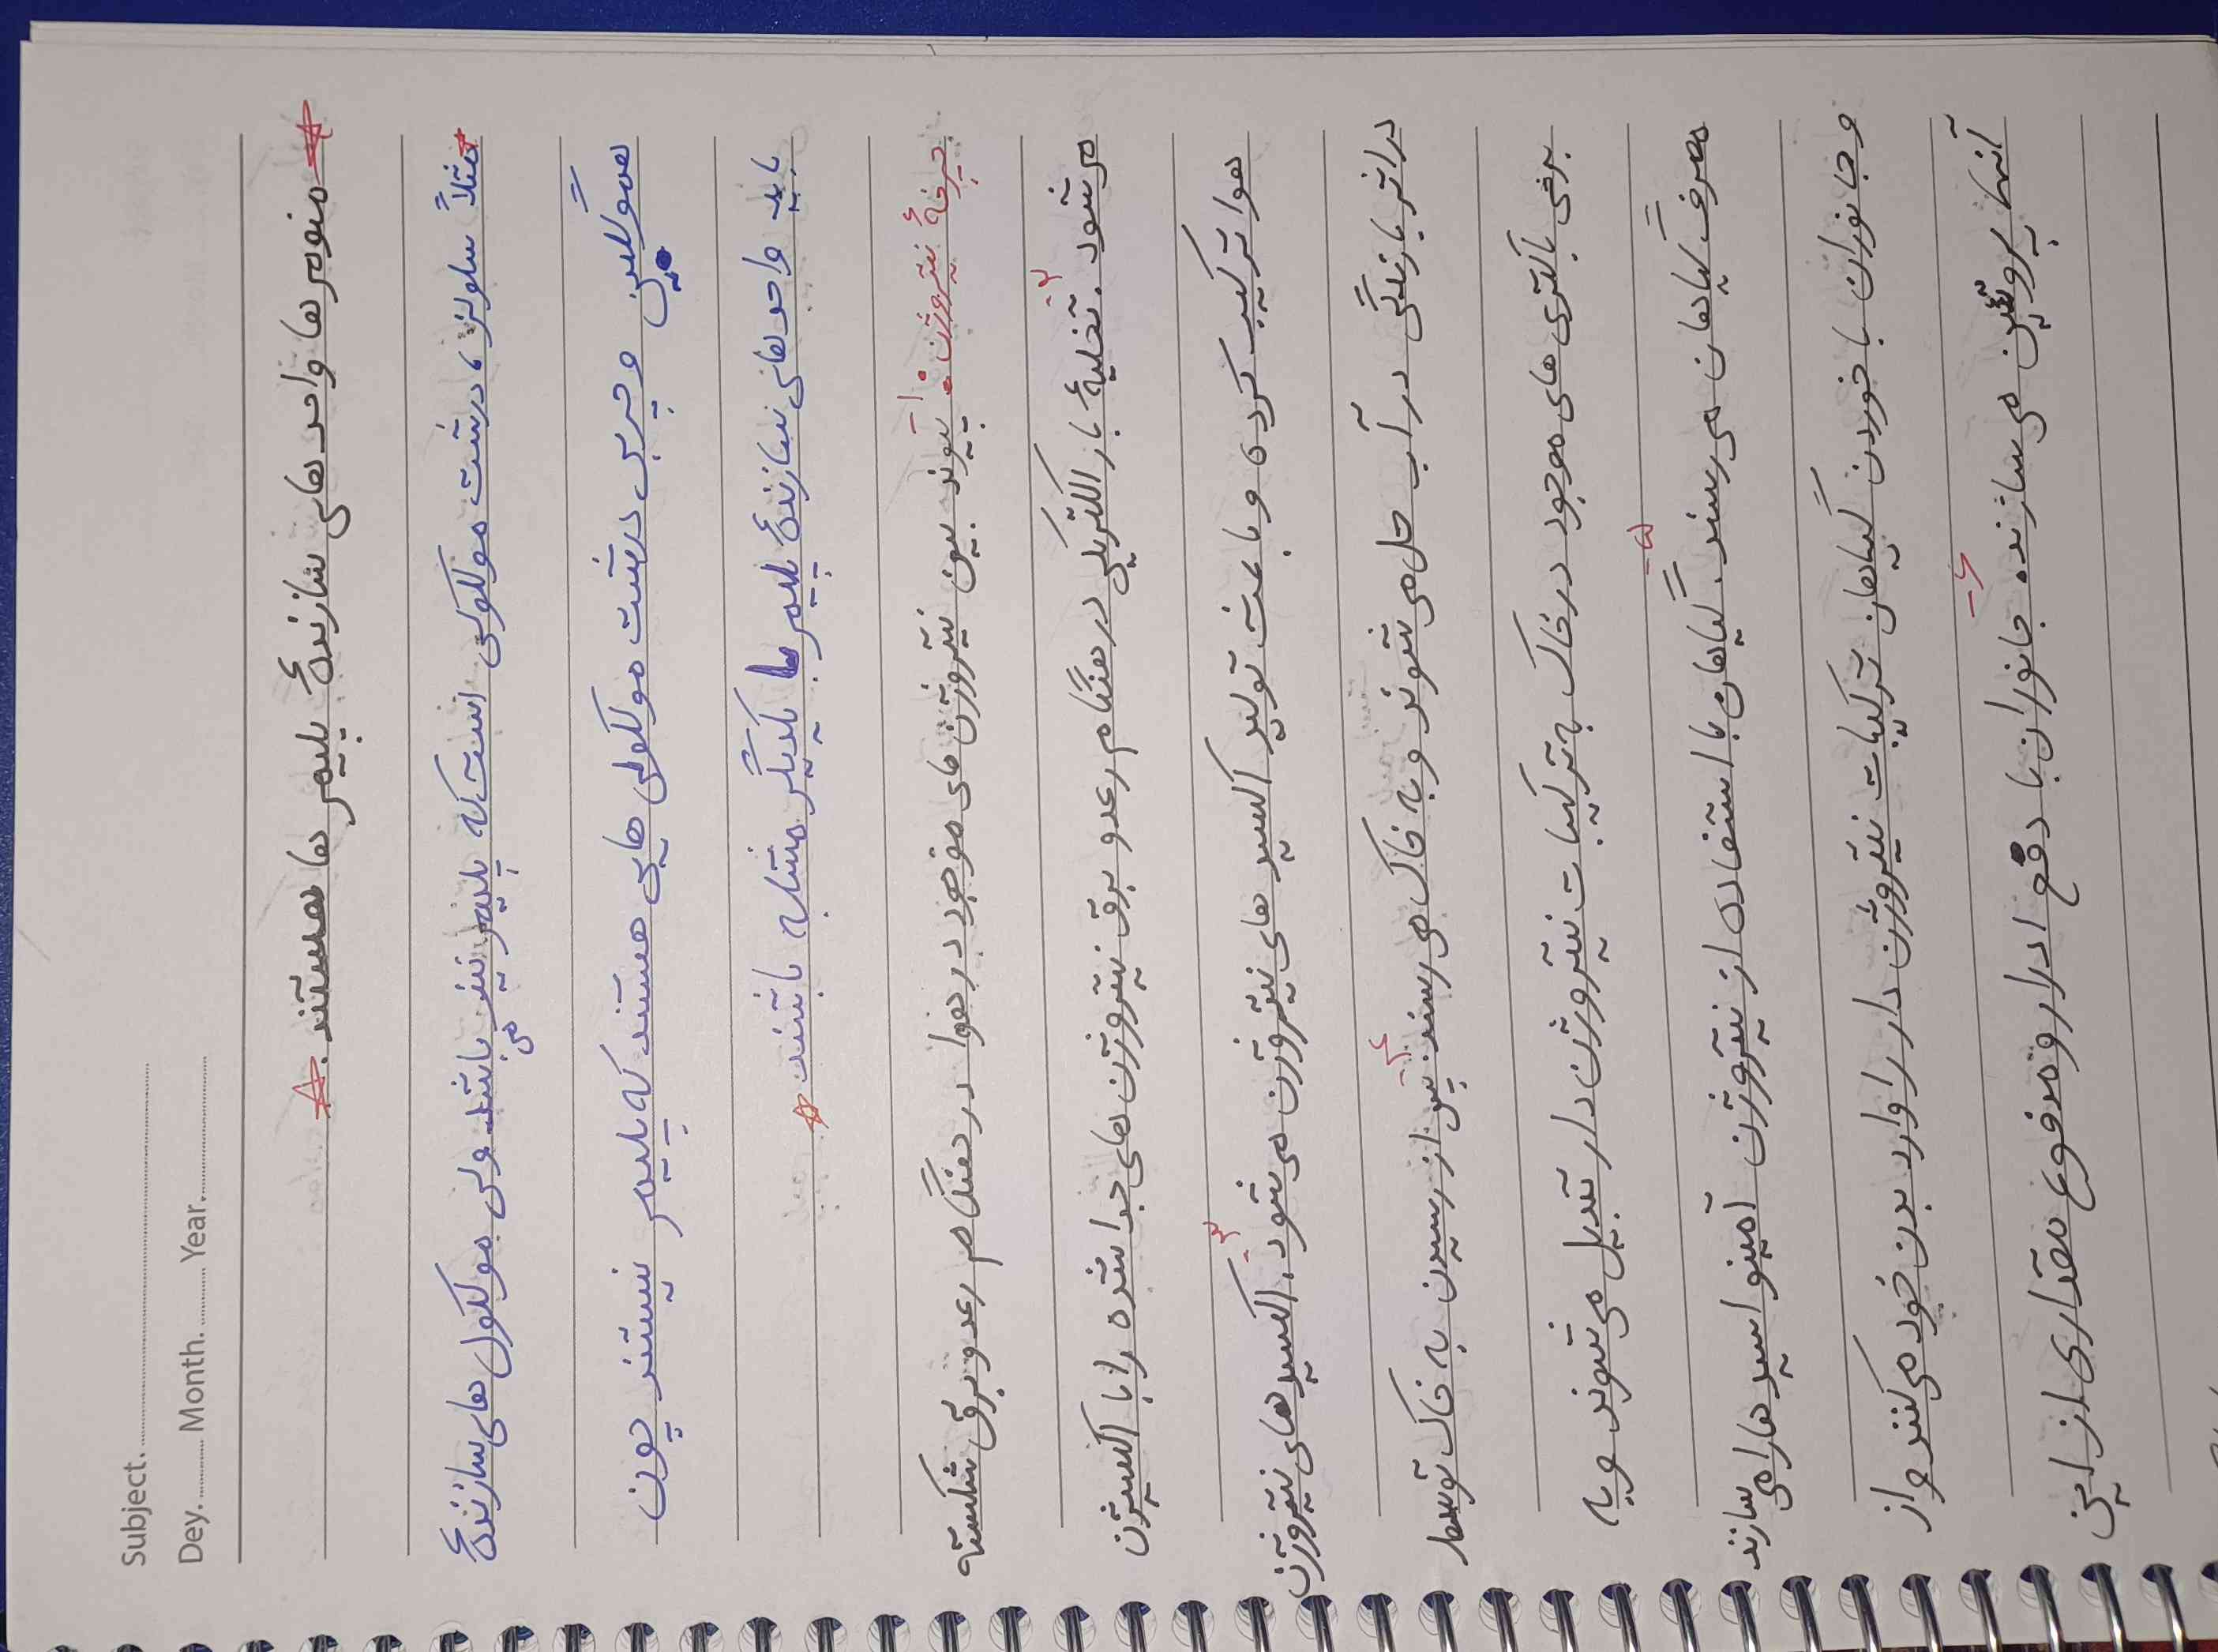 Subject.
Dey. Month. Year.
منومر ها واحد های سازندهٔ پلیمر ها هستند.
مثلاً سلولز، درشت مولکولی است که پلیمر نیز می باشد ولی مولکول های سازندهٔ
هموگلبین و چربی درشت مولکولی هایی هستند که پلیمر نیستند چون
باید واحد هانی سازندهٔ پلیمر ها بکدیگر مشابه باشند
چرخهٔ نیتروژن: ۱- پیوند بین نیتروژن های موجود در هوا در هنگام رعد و برق شکسته
می شود. ۲- تخلیهٔ بار الکتریکی در هنگام رعد و برق نیتروژن های جدا شده را با اکسیژن
هوا ترکیب کرده و باعث تولید اکسید های نیتروژن می شود. ۳- اکسید های نیتروژن
در اثر بارندگی در آب حل می شوند و به خاک می رسند ۴- پس از رسیدن به خاک توسط
برخی باکتری های موجود در خاک به ترکیبات نیتروژن دار تبدیل می شوند و به
مصرف گیاهان می رسند. ۵- گیاهان با استفاده از نیتروژن آمینو اسید ها را می سازند
و جانوران با خوردن گیاهان ترکیبات نیتروژن دار را وارد بدن خود می کنند و از
آنها پروتئین می سازند. ۶- جانوران با دفع ادرار و مدفوع مقداری از این